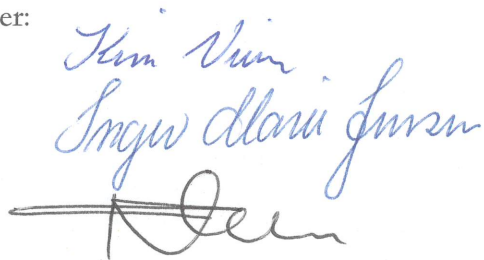 er:
Kim Vium
Inger Marie Jensen